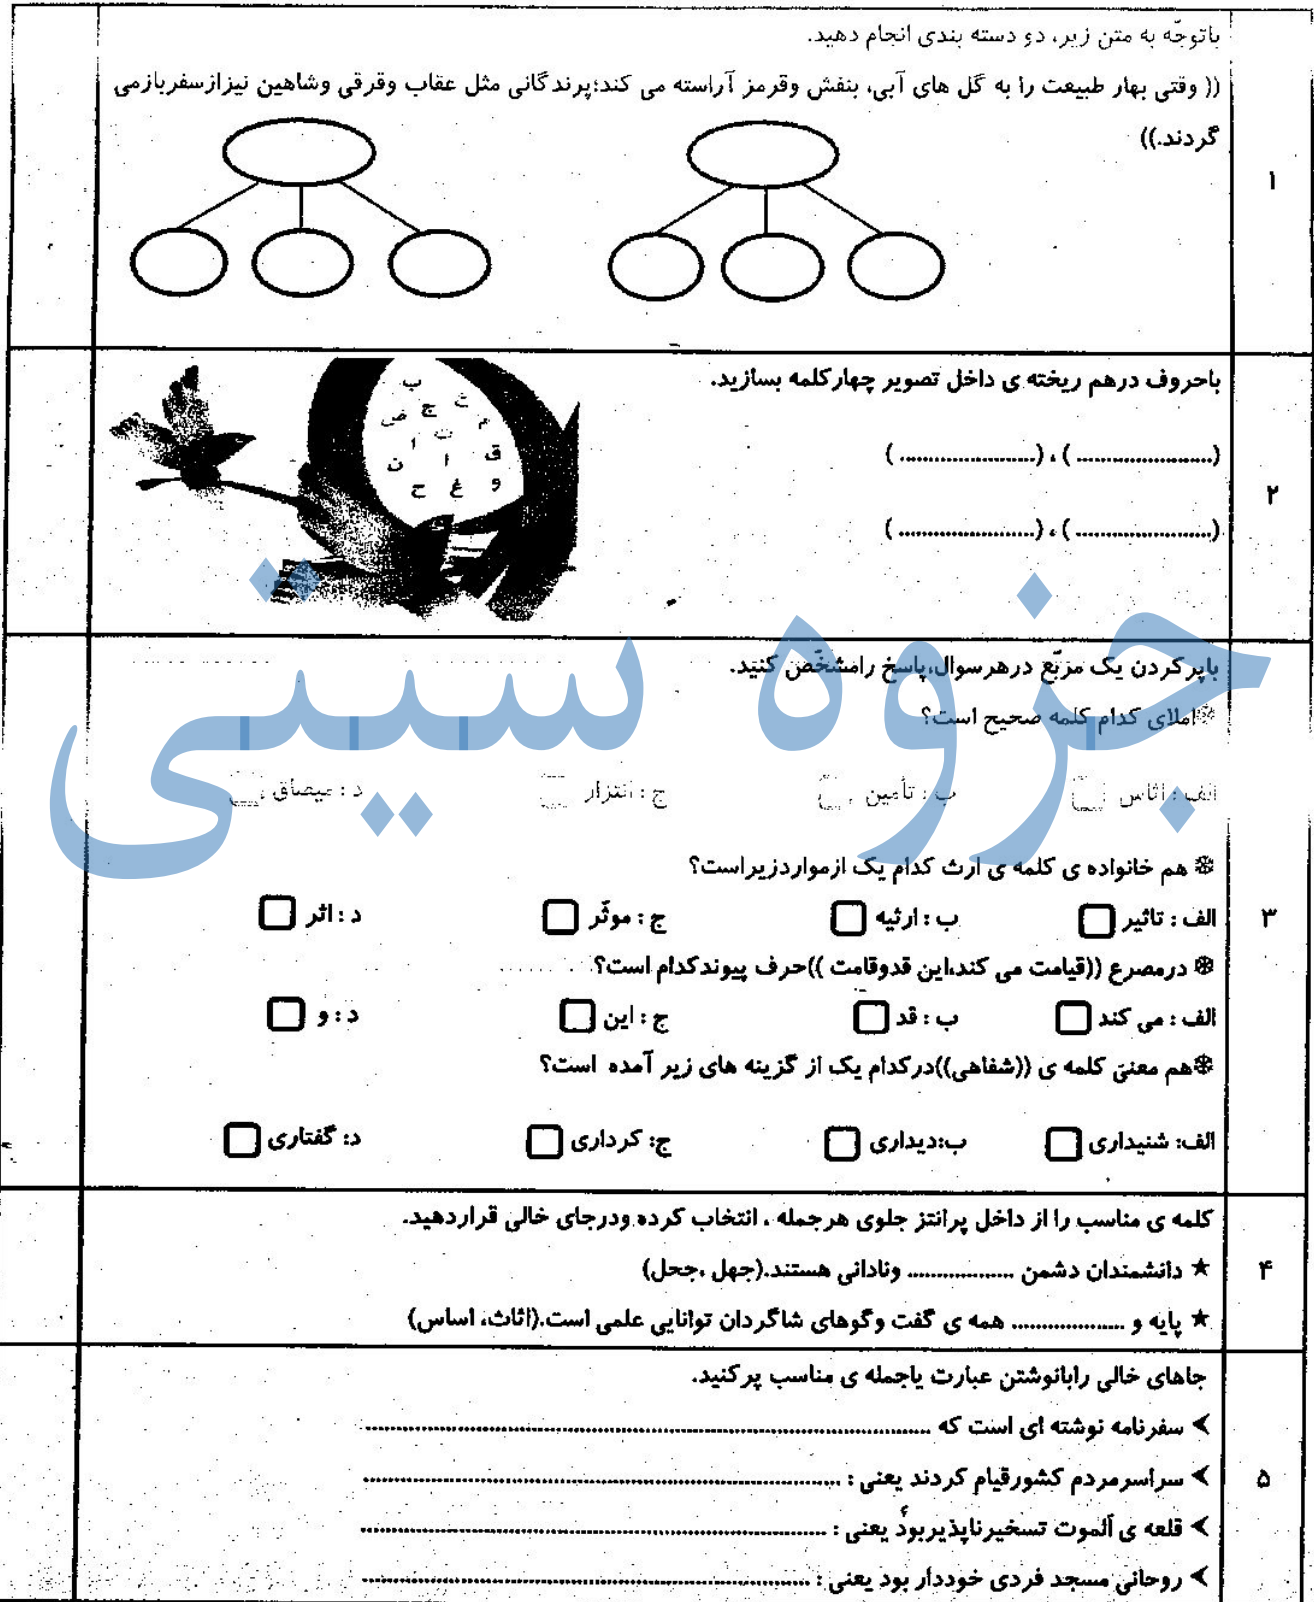 باتوجّه به متن زیر، دو دسته بندی انجام دهید.
(( وقتی بهار طبیعت را به گل های آبی، بنفش وقرمز آراسته می کند؛پرندگانی مثل عقاب وقرقی وشاهین نیزازسفربازمی
گردند.))
۱
باحروف درهم ریخته ی داخل تصویر چهارکلمه بسازید.
ب
ض چ خ
م
ا ت
ن ا ق
ح غ و
(......................) ، (......................)
(......................) ، (......................)
۲
باپرکردن یک مربّع درهرسوال،پاسخ رامشخّص کنید.
املای کدام کلمه صحیح است؟
الف : اثاس ب : تأمین ج : انتزار د : میصاق
هم خانواده ی کلمه ی ارث کدام یک ازمواردزیراست؟
الف : تاثیر ب : ارثیه ج : موثّر د : اثر
۳
درمصرع ((قیامت می کند،این قدوقامت ))حرف پیوندکدام است؟
الف : می کند ب : قد ج : این د : و
هم معنی کلمه ی ((شفاهی))درکدام یک از گزینه های زیر آمده است؟
الف: شنیداری ب:دیداری ج: کرداری د: گفتاری
جزوه سیتی
کلمه ی مناسب را از داخل پرانتز جلوی هرجمله ، انتخاب کرده ودرجای خالی قراردهید.
★ دانشمندان دشمن .................. ونادانی هستند.(جهل ،جحل)
۴
★ پایه و .................. همه ی گفت وگوهای شاگردان توانایی علمی است.(اثاث، اساس)
جاهای خالی رابانوشتن عبارت یاجمله ی مناسب پرکنید.
➤ سفرنامه نوشته ای است که ..................
➤ سراسرمردم کشورقیام کردند یعنی : ..................
۵
➤ قلعه ی اَلموت تسخیرناپذیربود یعنی : ..................
➤ روحانی مسجد فردی خوددار بود یعنی : ..................